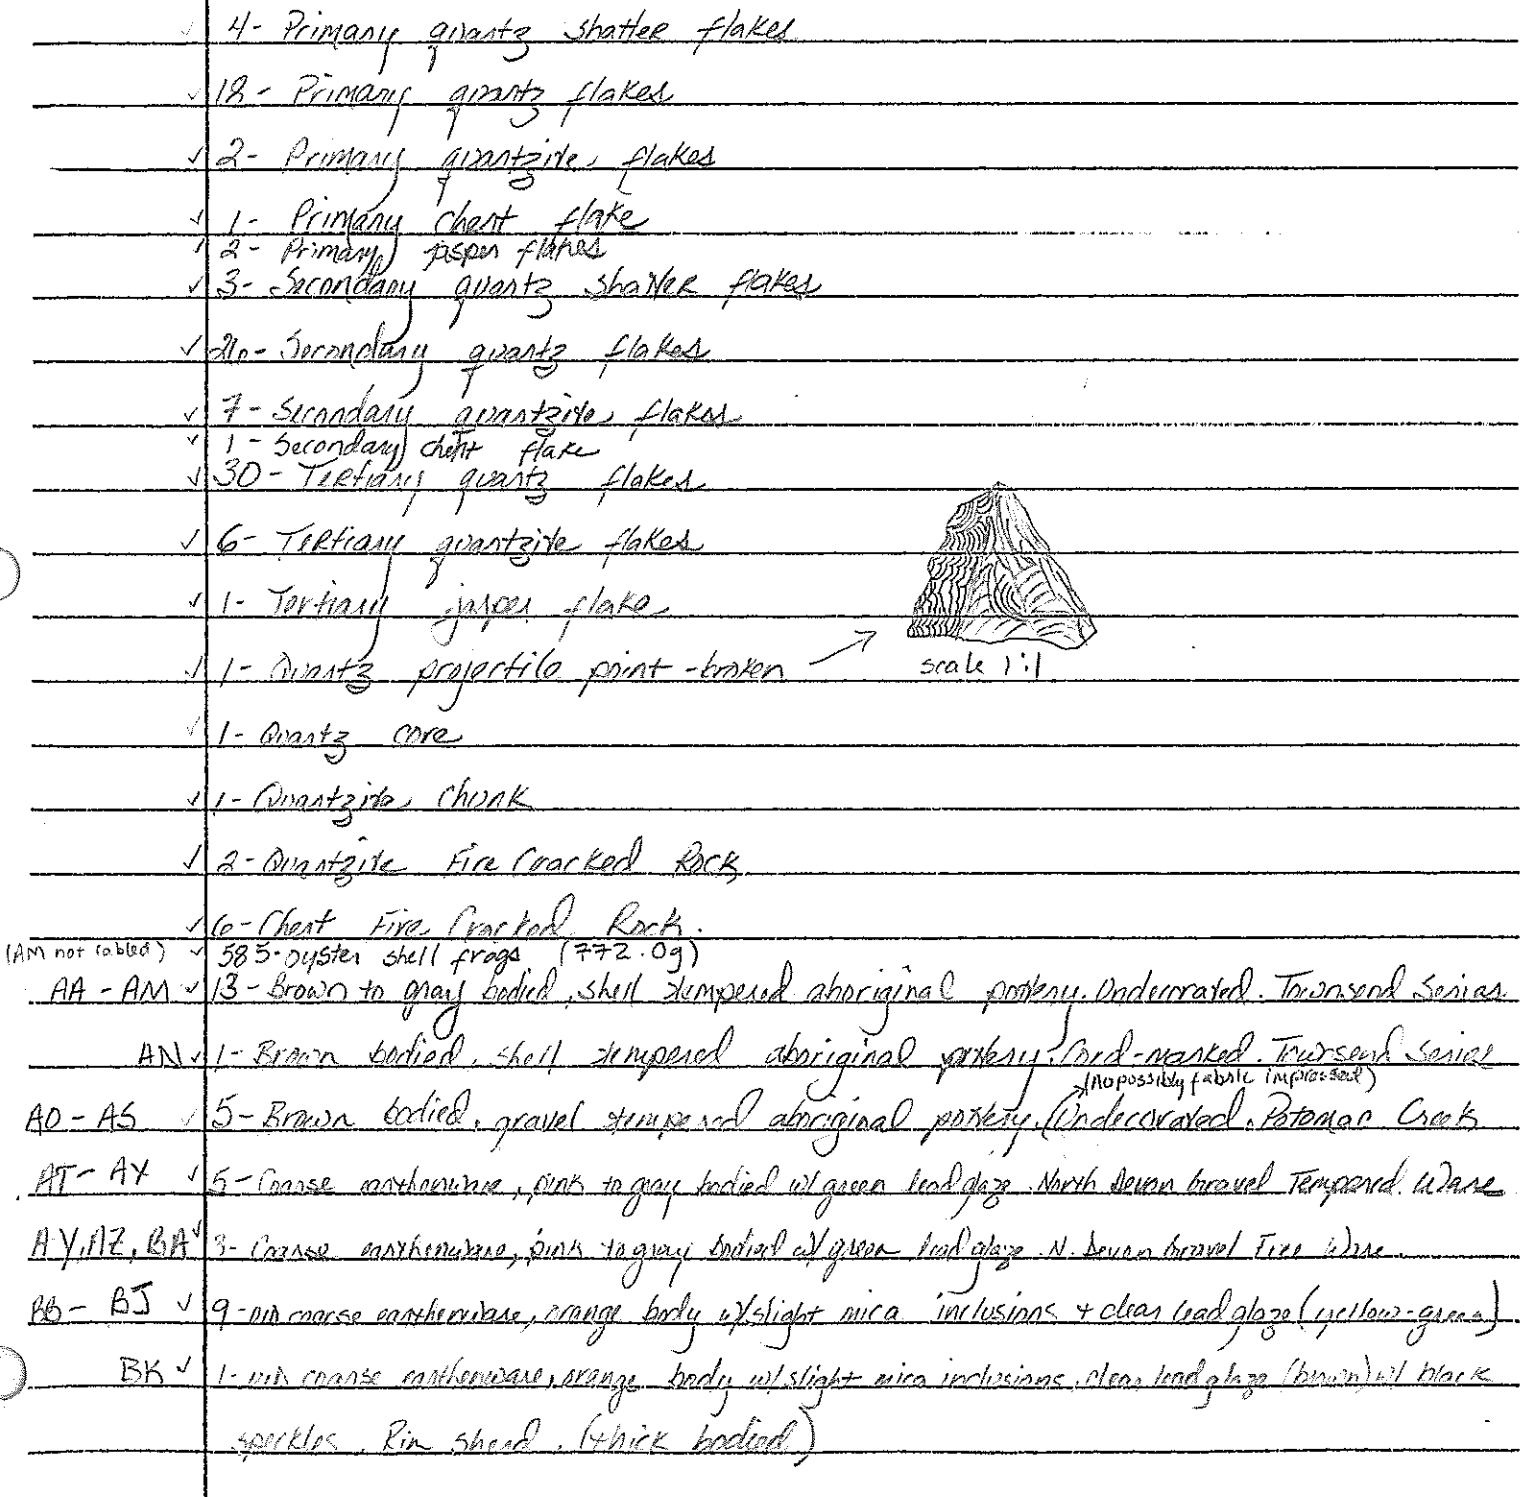 ✓ 4- Primary quartz shatter flakes
✓ 18- Primary quartz flakes
✓ 2- Primary quartzite flakes
✓ 1- Primary chert flake
✓ 2- Primary jasper flakes
✓ 3- Secondary quartz shatter flakes
✓ 26- Secondary quartz flakes
✓ 7- Secondary quartzite flakes
✓ 1- Secondary chert flake
✓ 30- Tertiary quartz flakes
✓ 6- Tertiary quartzite flakes
✓ 1- Tertiary jasper flake
✓ 1- Quartz projectile point -broken →
scale 1:1
✓ 1- Quartz core
✓ 1- Quartzite Chunk
✓ 2- Quartzite Fire Cracked Rock
✓ 6- Chert Fire Cracked Rock.
(AM not labled) ✓ 585- oyster shell frags (772.0g)
AA - AM ✓ 13- Brown to gray bodied, shell tempered aboriginal pottery. Undecorated. Townsend Series
AN ✓ 1- Brown bodied, shell tempered aboriginal pottery. Cord-marked. Townsend Series
possibly fabric impressed)
AO - AS ✓ 5- Brown bodied, gravel tempered aboriginal pottery. (Undecorated. Potomac Creek
AT - AX ✓ 5- Coarse earthenware, pink to gray bodied w/ green lead glaze. North Devon Gravel Tempered Ware
AY, AZ, BA ✓ 3- Coarse earthenware, pink to gray bodied w/ green lead glaze. N. Devon Gravel Free Ware.
BB - BJ ✓ 9- coarse earthenware, orange body w/ slight mica inclusions + clear lead glaze (yellow-green)
BK ✓ 1- coarse earthenware, orange body w/ slight mica inclusions, clear lead glaze (brown) w/ black
speckles. Rim sherd. (thick bodied)